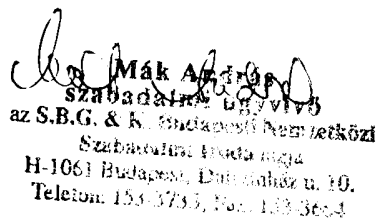 Mák András
szabadalmi ügyvivő
az S.B.G. & K. Budapesti Nemzetközi
Szabadalmi Iroda tagja
H-1061 Budapest, u. 10.
Telefon: 153-3733, Fax: 153-3664